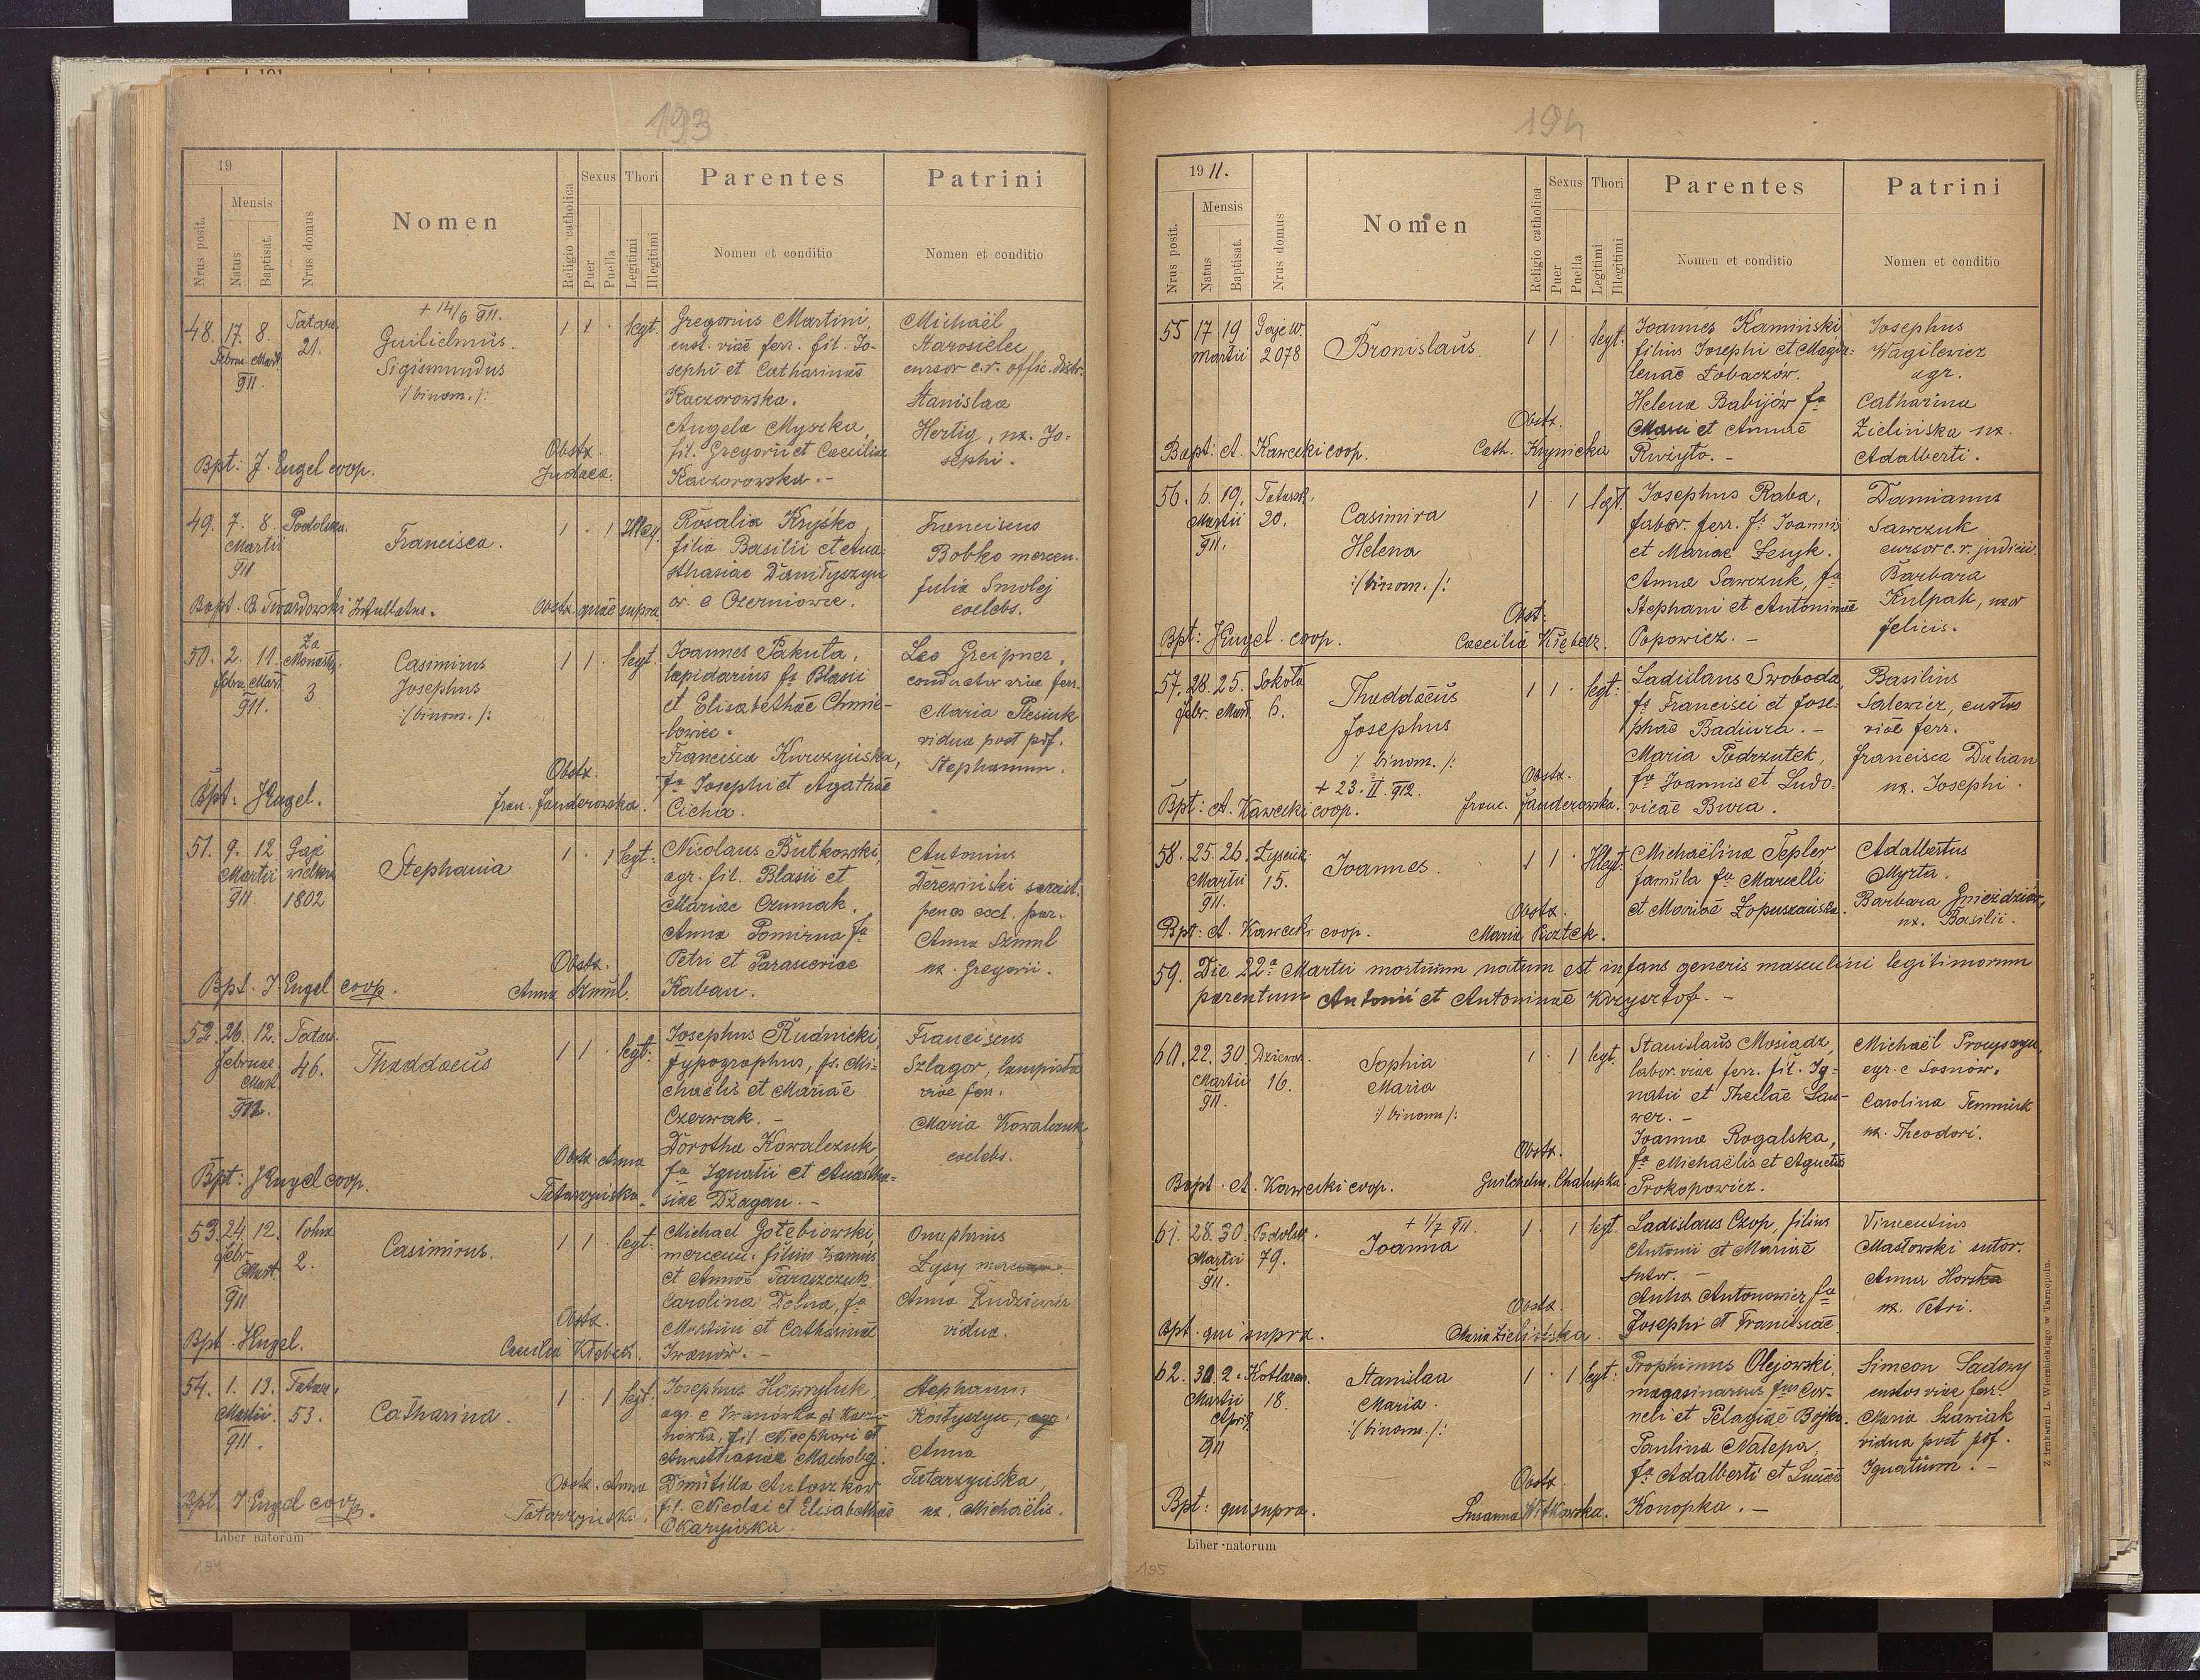 193
19
Nrus posit.
Mensis
Natus
Baptisat.
Nrus domus
Nomen
Religio catholica
Sexus
Puer
Puella
Thori
Legitimi
Illegitimi
Parentes
Nomen et conditio
Patrini
Nomen et conditio
48. 17. 8.
Febru. Mart.
911.
Tatars.
21.
+ 14/6 911.
Guilielmus
Sigismundus
:/binom./:
1 1 · legt.
Gregorius Martini,
cust. viae ferr. fil. Jo-
sephi et Catharinae
Kaczorowska.
Angela Myszka,
fil. Gregorii et Caeciliae
Kaczorowska. -
Michaël
Starosielec
cursor c.r. offic. distr.
Stanislaa
Hertig, ux. Jo-
sephi.
Obstx.
Judaea.
Bpt: J. Engel coop.
49. 7. 8.
Martii
911
Podolska.
Francisca.
1 · 1 Illeg.
Rosalia Kryśko,
filia Basilii et Ana-
sthasiae Daniłyszyn
or. e Czerniowce.
Franciscus
Bobko mercen.
Julia Smolej
coelebs.
Bapt. B. Twardowski Infullatus.
Obstx. quae supra
50. 2. 11.
Febru. Mart.
911.
Za
Monast.
3
Casimirus
Josephus
:/binom./:
1 1 · legt.
Joannes Pakuta,
lapidarius fs Blasii
et Elisabethae Chmie-
lowiec.
Francisca Kurczyńska,
fa Josephi et Agathae
Cicha.
Leo Greipner,
conductor viae ferr.
Maria Plesiuk
vidua post pdf.
Stephanum.
Obstx.
Franc. Janderowska.
Bpt: J Engel.
51. 9. 12
Martii
911.
Gaje
wielkie
1802
Stephania
1 · 1 legt:
Nicolaus Butkowski,
agr. fil. Blasii et
Mariae Czumak.
Anna Pomirna fa
Petri et Parasceviae
Kaban.
Antonius
Derewiński servit.
penes eccl. par.
Anna Szmul
ux. Gregorii.
Obstx.
Anna Szmul.
Bpt. J Engel coop.
52. 26. 12.
Februae
Mart.
Tatars.
46.
Thaddaeus
1 1 · legt:
Josephus Rudnicki
typographus, fs. Mi-
chaëlis et Mariae
Czerwak. -
Dorothea Kowalczuk,
fa Ignatii et Anastha-
siae Dżagan. -
Franciscus
Szlagor, lampista
viae ferr.
Maria Kowalczuk,
coelebs.
Obstx. Anna
Tatarzyńska.
Bpt: J Engel coop.
53. 24. 12.
Febr.
Mart.
911
2.
Casimirus.
1 1 · legt:
Michael Gołębiowski,
mercen. filius
et Annae Taraszczuk.
Carolina Dolna, fa
Martini et Catharinae
Iwanów. -
Onuphrius
Łysy
Anna Rudziewicz
vidua.
Obstx.
Caecilia Kłębek.
Bpt. Engel.
54. 1. 13.
Martii
911.
Tatars.
53.
Catharina.
1 · 1 legt.
Josephus Hawryluk,
agr. e Iwanówka
fil. Nicephori et
Anasthasiae Macholej.
Dmitilla Antoszków
fil. Nicolai et Elisabethae
Okaryńska.
Stephanus
Kostyszyn, agr.
Anna
Tatarzyńska
ux. Michaëlis.
Obstx. Anna
Tatarzyńska.
Bpt. J Engel coop.
Liber natorum
194
194
1911.
Nrus posit.
Mensis
Natus
Baptisat.
Nrus domus
Nomen
Religio catholica
Sexus
Puer
Puella
Thori
Legitimi
Illegitimi
Parentes
Nomen et conditio
Patrini
Nomen et conditio
55 17 19
Martii
Gaje W.
2078
Bronislaus.
1 1 · legt:
Joannes Kamiński
filius Josephi et Magda-
lenae Łobaczów.
Helena Babijów fa
Marci et Annae
Rużyto. -
Josephus
Wagilewicz
agr.
Catharina
Zielińska ux.
Adalberti.
Obstx.
Cath. Krynicka
Bapt: A. Kawecki coop.
56. 6. 19.
Martii
911.
Tatarsk.
20.
Casimira
Helena
:/binom./:
1 · 1 legt.
Josephus Raba,
fabor. ferr. fs Joannis
et Mariae Lesyk.
Anna Sawczuk, fa
Stephani et Antoninae
Popowicz. -
Damianus
Sawczuk
cursor c.r. judicii.
Barbara
Kulpak, uxor
Felicis.
Obst:
Caecilia Kłębek.
Bpt: J Engel. coop.
57. 28. 25.
Febr. Mart.
Sokoła
6.
Thaddaeus
Josephus
:/binom./:
+ 23. II. 912.
1 1 · legt:
Ladislaus Swoboda,
fs Francisci et Jose-
phae Badiura. -
Maria Podrzutek,
fa Joannis et Ludo-
vicae Bura.
Basilius
Salewicz, custos
viae ferr.
Francisca Dulian
ux. Josephi.
Obstx.
Franc. Janderowska.
Bpt: A. Kawecki coop.
58. 25. 26.
Martii
911.
15.
Joannes.
1 1 · Illegt.
Michaëlina Tepler,
famula fa Marcelli
et Mariae Łopuszańska.
Adalbertus
Myrta.
Barbara Gnieździów,
ux. Basilii.
Obstx.
Maria Rożek.
Bpt: A. Kawecki coop.
59. Die 22a Martii mortuum natum est infans generis masculini legitimorum
parentum Antonii et Antoninae Krzysztof. -
60. 22. 30.
Martii
911
16.
Sophia
Maria
:/binom/:
1 · 1 legt.
Stanislaus Mosiadz,
labor. viae ferr. fil. Ig-
natii et Theclae Lau-
wer. -
Joanna Rogalska,
fa Michaëlis et Agnetis
Prokopowicz.
Michaël Procyszyn,
agr. e Sosnów.
Carolina Temniuk
ux. Theodori.
Obstx.
Guilelm. Chalupka
Bapt. A. Kawecki coop.
61. 28. 30.
Martii
911.
Podolsk.
79.
+ 1/7 911.
Joanna
1 · 1 legt.
Ladislaus Czop, filius
Antonii et Mariae
Sutor. -
Anna Antonowicz fa
Josephi et Franciscae
Vincentius
Masłowski sutor.
Anna Horska
ux. Petri.
Obstx.
Maria Zielińska.
Bpt. qui supra.
62. 30. 2.
Martii
April
911
Kotlarow.
18.
Stanislaa
Maria.
:/binom./:
1 · 1 legt:
Prophimus Olejowski,
magasinarius fius Cor-
neli et Pelagiae Bojko.
Paulina Nalepa,
fa Adalberti et Luciae
Konopka. -
Simeon Sadowy
custos viae ferr.
Maria Szawiak
vidua post pdf.
Ignatium. -
Obstx.
Susanna Witkowska.
Bpt: qui supra.
Liber natorum
195
Z drukarni L. Wierzbickiego w Tarnopolu.